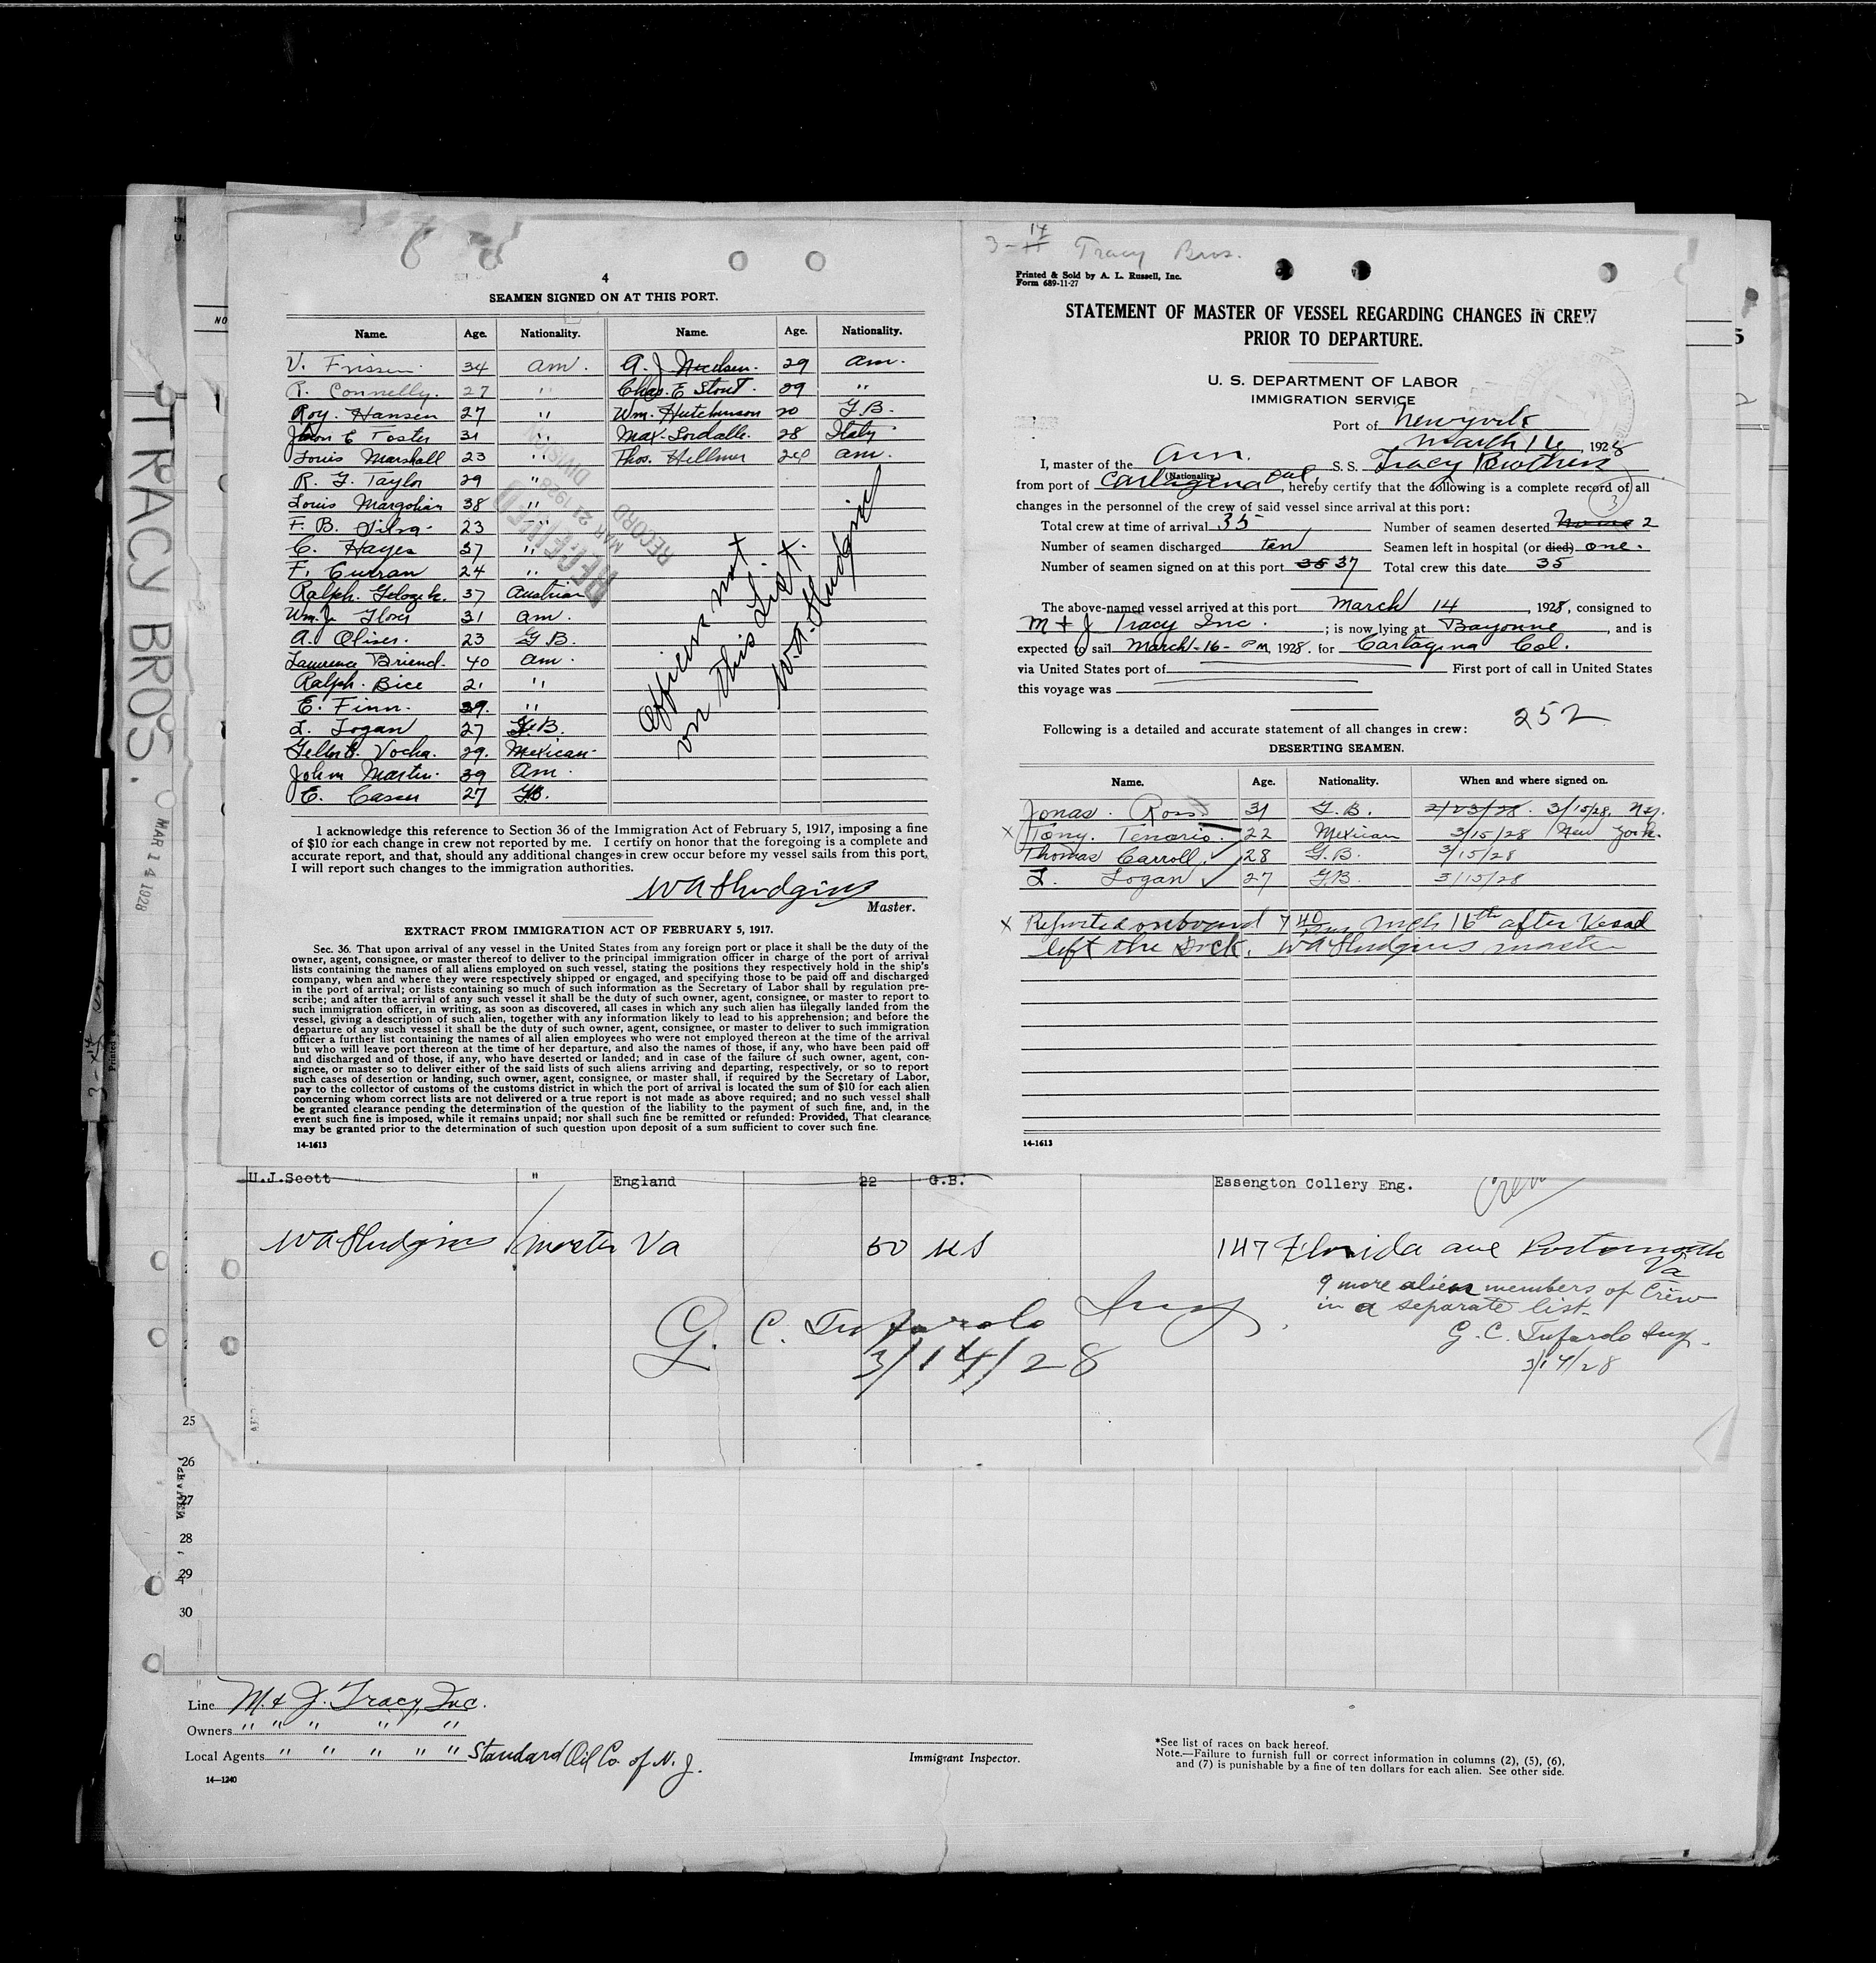 TRACY BROS.
MAR 14 1928
4
SEAMEN SIGNED ON AT THIS PORT.
Name. Age. Nationality. Name. Age. Nationality.
V. Frissen. 34 am. A. J. 29 am.
R. Connelly. 27 " Chas. E Stout. 29 "
Roy. Hansen 27 " Wm. Hutchinson 20 G.B.
E Foster 31 " Max. 28 Italy
Louis Marshall 23 " Thos. Hillmer am.
R. G. Taylor 29 "
Louis Margolian 38 "
F. B. Silva 23 "
C. Hayes 37 "
F. Curran 24 "
Ralph. 37 Austrian
Wm. J. 31 am.
A. Oliver. 23 G B.
Lawrence Briend. 40 am.
Ralph. Bice 21 "
E. Finn. 39. "
L. Logan 27 G.B.
Vocha. 29. Mexican
John Martin. 39 Am.
E. 27 G.B.
RECEIVED
MAR 21 1928
RECORD DIVISION
Officers not
on this List.
W.A. Hudgins
I acknowledge this reference to Section 36 of the Immigration Act of February 5, 1917, imposing a fine
of $10 for each change in crew not reported by me. I certify on honor that the foregoing is a complete and
accurate report, and that, should any additional changes in crew occur before my vessel sails from this port,
I will report such changes to the immigration authorities.
WA Hudgins
Master.
EXTRACT FROM IMMIGRATION ACT OF FEBRUARY 5, 1917.
Sec. 36. That upon arrival of any vessel in the United States from any foreign port or place it shall be the duty of the
owner, agent, consignee, or master thereof to deliver to the principal immigration officer in charge of the port of arrival
lists containing the names of all aliens employed on such vessel, stating the positions they respectively hold in the ship's
company, when and where they were respectively shipped or engaged, and specifying those to be paid off and discharged
in the port of arrival; or lists containing so much of such information as the Secretary of Labor shall by regulation pre-
scribe; and after the arrival of any such vessel it shall be the duty of such owner, agent, consignee, or master to report to
such immigration officer, in writing, as soon as discovered, all cases in which any such alien has illegally landed from the
vessel, giving a description of such alien, together with any information likely to lead to his apprehension; and before the
departure of any such vessel it shall be the duty of such owner, agent, consignee, or master to deliver to such immigration
officer a further list containing the names of all alien employees who were not employed thereon at the time of the arrival
but who will leave port thereon at the time of her departure, and also the names of those, if any, who have been paid off
and discharged and of those, if any, who have deserted or landed; and in case of the failure of such owner, agent, con-
signee, or master so to deliver either of the said lists of such aliens arriving and departing, respectively, or so to report
such cases of desertion or landing, such owner, agent, consignee, or master shall, if required by the Secretary of Labor,
pay to the collector of customs of the customs district in which the port of arrival is located the sum of $10 for each alien
concerning whom correct lists are not delivered or a true report is not made as above required; and no such vessel shall
be granted clearance pending the determination of the question of the liability to the payment of such fine, and, in the
event such fine is imposed, while it remains unpaid; nor shall such fine be remitted or refunded: Provided, That clearance
may be granted prior to the determination of such question upon deposit of a sum sufficient to cover such fine.
14-1613
3-14 Tracy Bros.
Printed & Sold by A. L. Russell, Inc.
Form 689-11-27
STATEMENT OF MASTER OF VESSEL REGARDING CHANGES IN CREW
PRIOR TO DEPARTURE.
U. S. DEPARTMENT OF LABOR
IMMIGRATION SERVICE
Port of New york
March 16, 1928
I, master of the Am. (Nationality) S. S. Tracy Brothers
from port of Cartagena Col, hereby certify that the following is a complete record of all
changes in the personnel of the crew of said vessel since arrival at this port:
Total crew at time of arrival 35 Number of seamen deserted None 2
Number of seamen discharged ten Seamen left in hospital (or died) one.
Number of seamen signed on at this port 35 37 Total crew this date 35
The above-named vessel arrived at this port March 14, 1928, consigned to
M & J Tracy Inc.; is now lying at Bayonne, and is
expected to sail March-16- PM, 1928. for Cartagina Col.
via United States port of First port of call in United States
this voyage was
252
Following is a detailed and accurate statement of all changes in crew:
DESERTING SEAMEN.
Name. Age. Nationality. When and where signed on.
Jonas. Ross 31 G.B. 2/23/28. 3/15/28. N.Y.
X Tony. Tenario. 22 Mexican 3/15/28 New York.
Thomas Carroll. 28 G.B. 3/15/28
L. Logan 27 G.B. 3/15/28
X Reported onboard 7 40 Pm Mch 16th after Vessel
left the Dock. WA Hudgins master
14-1613
U.J.Scott " England 22 G.B. Essengton Collery Eng.
Crew
WA Hudgins Master Va 50 US 147 Florida ave Portsmouth
Va
9 more alien members of Crew
in a separate list.
G. C. Tufarolo Insp.
3/14/28
G. C. Tufarolo Insp.
3/14/28
25
26
27
28
29
30
Line M. & J. Tracy, Inc.
Owners " " " " "
Local Agents " " " " " Standard Oil Co. of N. J.
14—1240
Immigrant Inspector.
*See list of races on back hereof.
Note.—Failure to furnish full or correct information in columns (2), (5), (6),
and (7) is punishable by a fine of ten dollars for each alien. See other side.